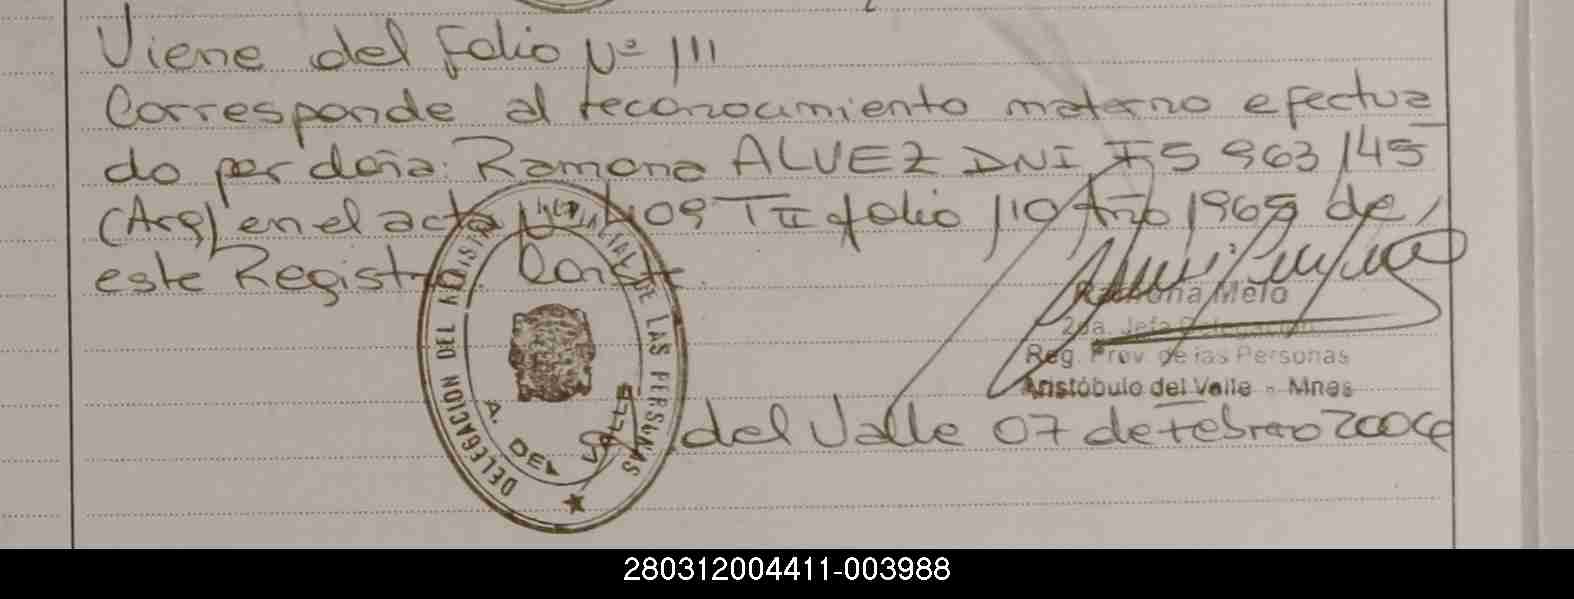 Viene del folio Nº 111
Corresponde al reconocimiento materno efectua
do por doña: Ramona ALVEZ DNI F5 963 145
(Arg) en el acta Nº 409 T II folio 110 Año 1965 de
este Registro. Conste.
Ramona Melo
2da. Jefa Delegación
Reg. Prov de las Personas
Aristóbulo del Valle - Mnes
DELEGACION DEL REGISTRO PROVINCIAL DE LAS PERSONAS
A. DEL VALLE
A. del Valle 07 de Febrero
280312004411-003988